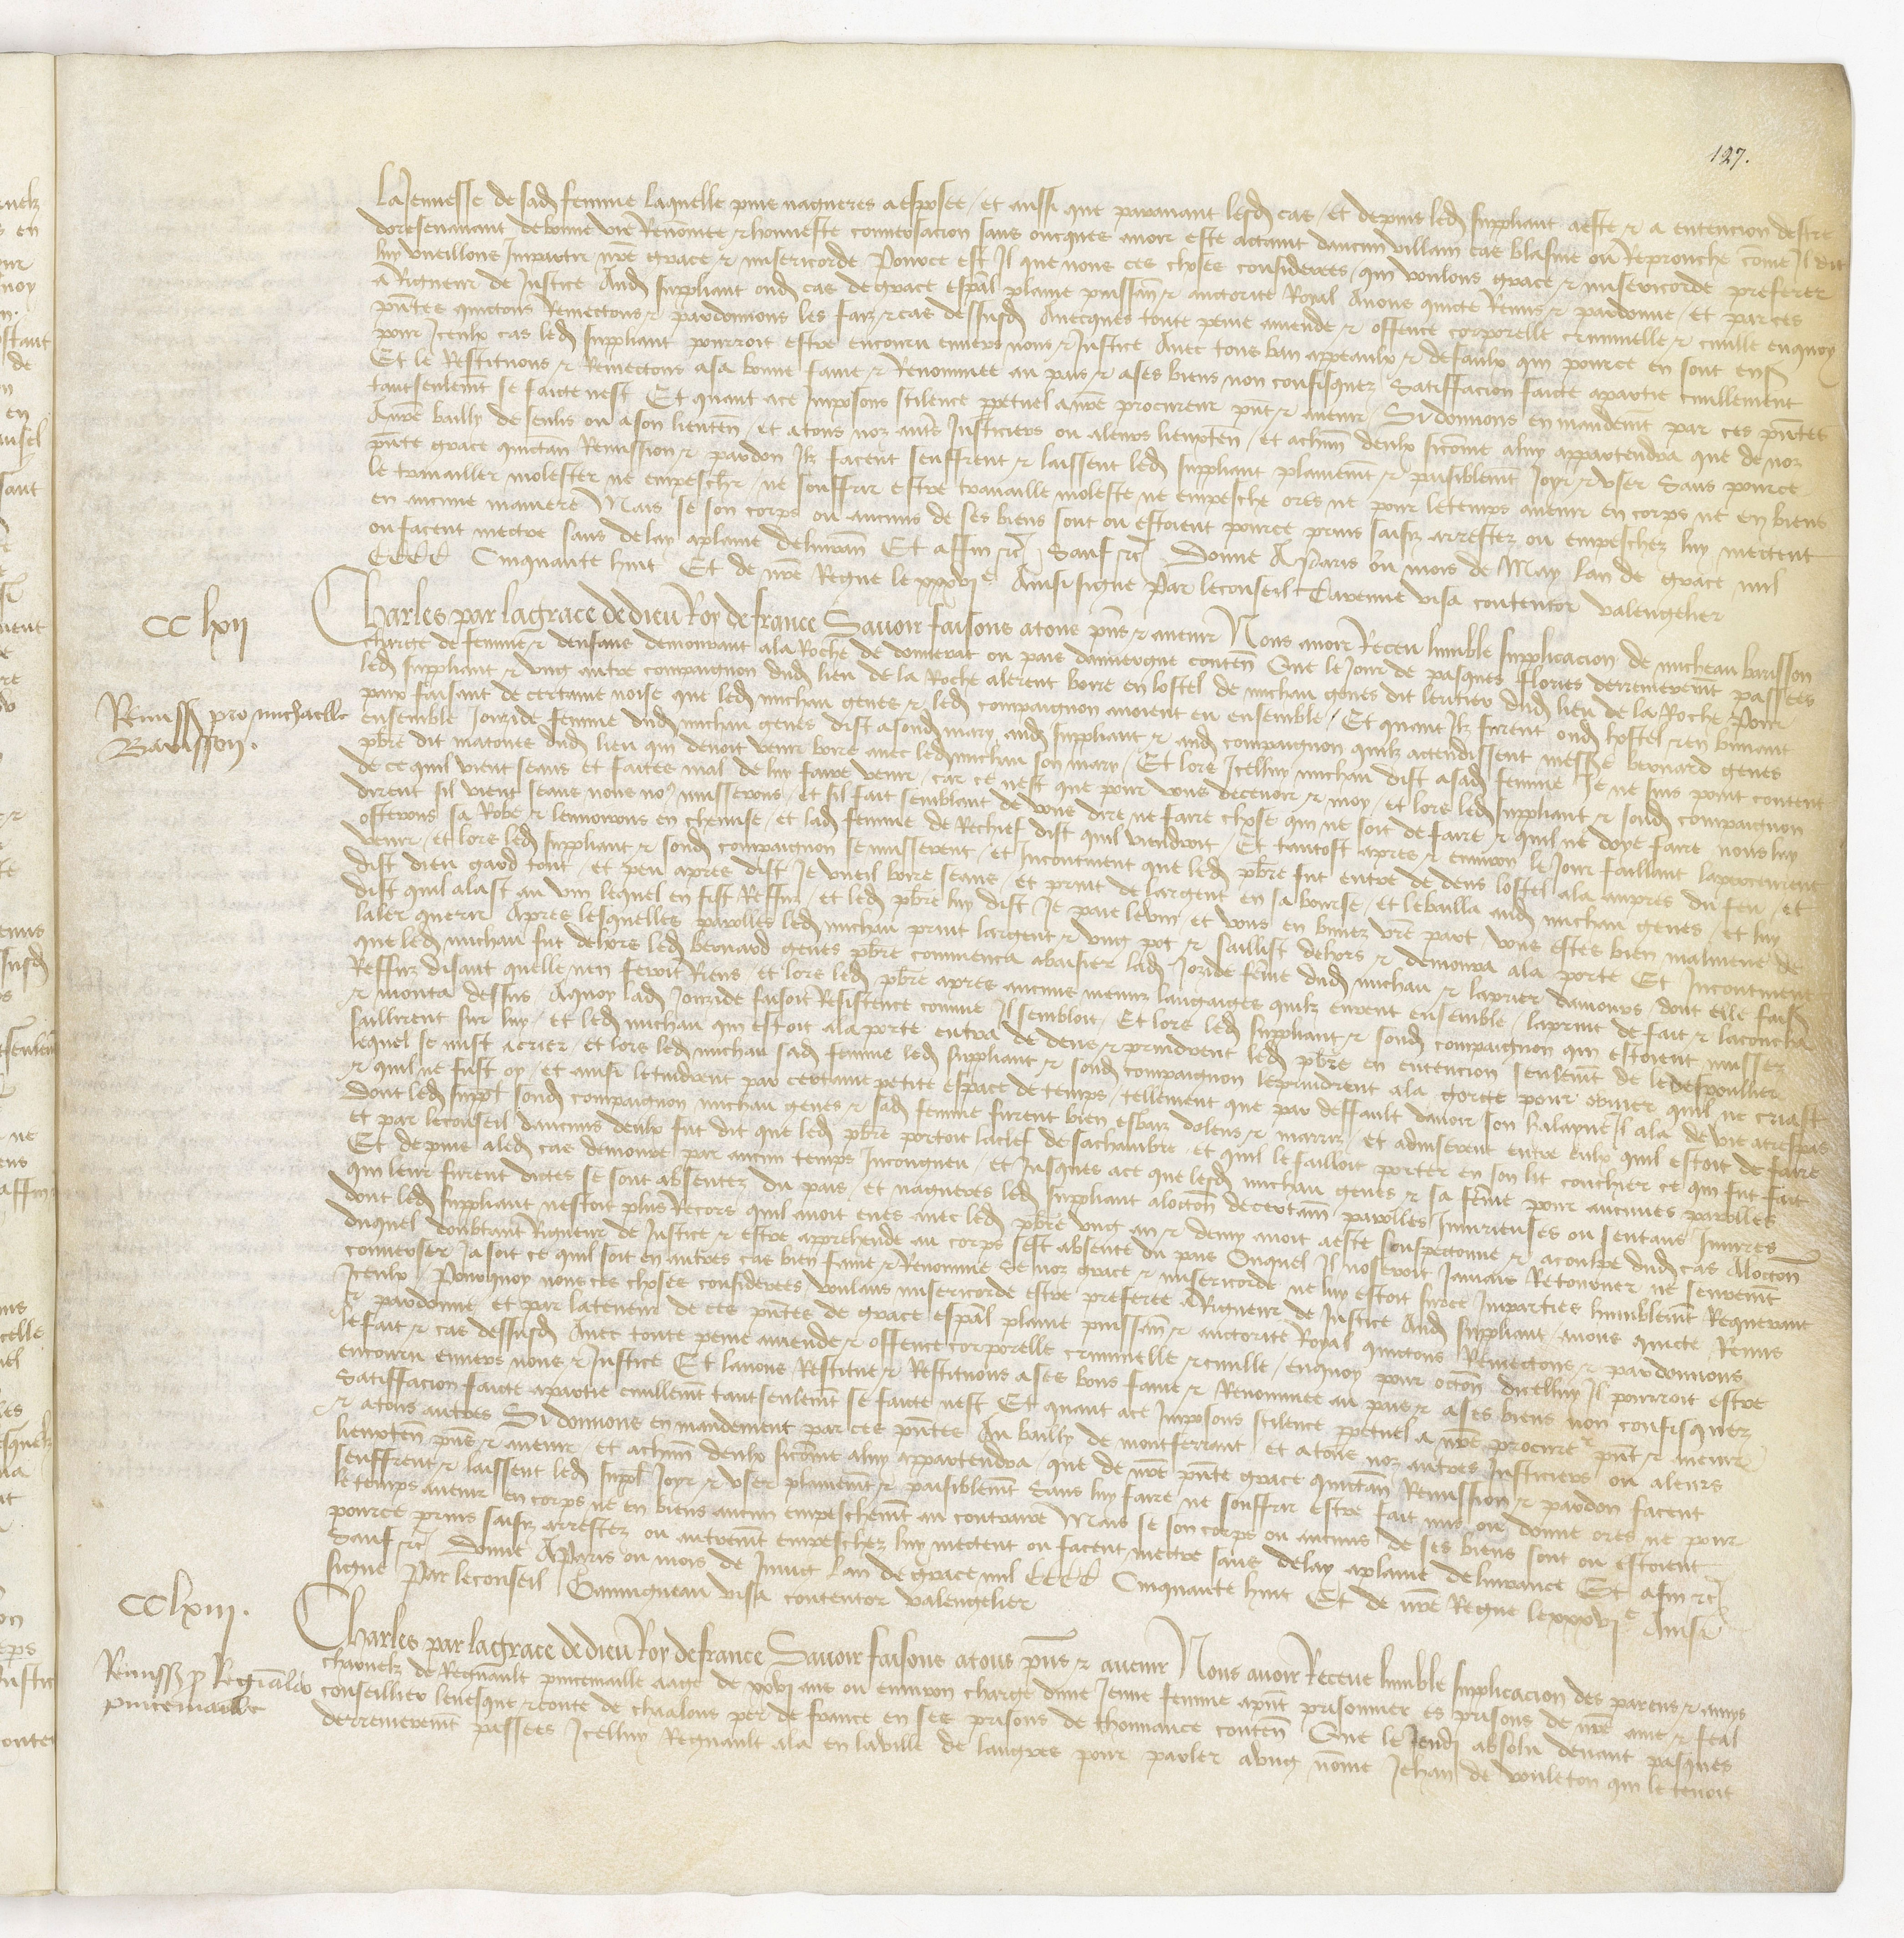 127.
La Jennesse de sad femme laquelle puis nagueres a espousee / et aussi que paravant lesd cas / et depuis led suppliant a este & a entencion destre
doresenavant de bonne vie Renommee & honneste conversacion sans oncques avoir este actaint daucun villain cas blasme ou Reprouche come Il dit
luy vueillons Impartir nre grace & misericorde Pource est Il que nous ces choses considerees / qui voulons grace & misericorde preferer
a Rigueur de Justice Aud suppliant oud cas de grace espal plaine puissan & auctorite Royal Avons quicte Remis & pardonne / et par ces
pntes quictons Remectons & pardonnons les faiz & cas dessusd Avecques toute peine amende & offence corporelle criminelle & civille enquoy
pour Iceulx cas led suppliant pourroit estre encouru envers nous & Justice Avec tous ban appeaulx & defaulx qui pource en sont ens
Et le Restituons & Remectons a sa bonne fame & Renommee au pais & a ses biens non confisquez Satiffacion faicte a partie civillement
tantseulemt se faicte nest Et quant a ce Imposons scilence ppetuel a nre procureur pnt & avenir / Si donnons en mandemt par ces pntes
Au nre bailly de senlis ou a son lieuten / et a tous noz aues Justiciers ou a leurs lieuxten / et a chun deulx sicome a luy appartendra que de noz
pnte grace quictan Remission & pardon Ilz facent seuffrent & laissent led suppliant plainemt & paisiblemt Joyr & user Sans pource
le travailler molester ne empescher / ne souffrir estre travaille moleste ne empesche ores ne pour letemps avenir en corps ne en biens
en aucune maniere Mais se son corps ou aucuns de ses biens sont ou estoient pource prins saisiz arrestez ou empeschez luy mectent
ou facent mectre sans delay aplaine delivran Et affin &c Sauf &c Donne A Paris ou mois de May lan de grace mil
CCCC Cinquante huit Et de nre Regne le xxxvie Ainsi signe Par leconseil Clavenne visa contentor valengelier
CC lxii
Remiss pro michaelle
Barisson .
Charles par la grace de dieu Roy de france Savoir faisons atous pns & avenir Nous avoir Receu humble supplicacion de micheau barisson
charge de femme & denfans demourant ala Roche de donnezat ou pais dauvergne conten Que le Jour de pasques flories derrenieremt passees
led suppliant & ung autre compaignon dud lieu de la Roche alerent boire en lostel de michau genes dit leritier dud lieu de la Roche / Pour
paix faisant de certaine noise que led michau genes & led compaignon avoient eu ensemble / Et quant Ilz furent oud hostel & en buvant
ensemble Jouzide femme dud michau genes dist a sond mary aud suppliant & aud compaignon quilz actendissent messre bernard genes
pbre dit matones dud lieu qui devoit venir boire avec led michau son mary / Et lors Icelluy michau dist a sad femme Je ne suis point content
de ce quil vient seans et faictes mal de luy faire venir / car ce nest que pour vous decevoir & moy / et lors led suppliant & sond compaignon
dirent sil vient seans nous no9 musserons / et sil fait semblant de vous dire ne faire chose qui ne soit de faire & quil ne doye faire / nous luy
osterons sa Robe & lenvoirons en chemise / et lad femme de Rechief dist quil viendroit / Et tantost apres & environ le Jour faillant laparceurent
venir / et lors led suppliant & sond compaignon se musserent / et Incontinent que led pbre fut entre de dens lostel ala aupres du feu / et
dist dieu gard tout / et peu apres dist Je vueil boire seans / et print de largent en sa bourse / et lebailla aud michau genes / et luy
dist quil alast au vin lequel en fist Reffuz / et led pbre luy dist Je paie levin / et vous en buvez vre part / vous estes bien malmene de
laler querir Apres lesquelles parolles led michau print largent & ung pot & saillist dehors & demoura ala porte Et Incontinent
que led michau fut dehors led bernard genes pbre commenca abaisier lad Jozide feme dud michau & laprier damours / dont elle fais
Reffuz disant quelle nen feroit Riens / et lors led pbre apres aucuns menuz langaiges quilz eurent ensemble / laprint de fait & lacoucha
& monta dessus / Aquoy lad Jouzide faisoit Resistence comme Il sembloit / Et lors led suppliant & sond compaignon qui estoient mussez
saillirent sur luy / et led michau qui estoit ala porte entra de dens & prindrent led pbre en entencion seulemt de ledespouller
lequel se mist a crier / et lors led michau sad femme led suppliant & sond compaignon leprindrent ala gorge pour obvier quil ne criast
& quil ne fust oy / et ainsi letindrent par certaine petite espace de temps / tellement que par deffault davoir son halayne Il ala de vie a trespas
Dont led suppl sond compaignon michau genes & sad femme furent bien esbaiz dolens & marriz / et adviserent entre eulx quil estoit de faire
et par leconseil daucuns deulx fut dit que led pbre portoit laclef de sachambre / et quil le failloit porter en son lit couchier ce qui fut fait
Et depuis aled cas demoure par aucun temps Incongneu / et Jusques ace que lesd michau genes & sa feme pour aucunes parolles
qui leur furent dictes se sont absentez du pais / et nagueres led suppliant aloccon decertain parolles Injurieuses ou sentans Injures
dont led suppliant nestoit plus Recors quil avoit eues avec led pbre ung an & demy avoit aeste souspeconne & acoulpe dud cas Aloccon
duquel doubtant Rigueur de Justice & estre aprehende au corps sest absente du pais Ouquel Il noseroit Jamais Retourner ne seurement
converser Ja soit ce quil soit en autres cas bien fame & Renomme Se noz grace & misericorde ne luy estoit surce Imparties humblemt Requerant
Icelle / Pourquoy nous ces choses considerees voulans misericorde estre preferee a Rigueur de Justice Aud suppliant avons quicte Remis
& pardonne et par lateneur de ces pntes de grace espal plaine puissan & auctorite Royal quictons Remectons & pardonnons
lefait & cas dessusd Avec toute peine amende & offence corporelle criminelle & civille / enquoy pour occon dicelluy Il pourroit estre
encouru envers nous & Justice Et lavons Restitue & Restituons a ses bons fame & Renommee au pais & a ses biens non confisquez
Satiffacion faicte apartie civillemt tantseulemt se faicte nest Et quant ace Imposons scilence ppetuel a nre procure pnt & avenir
& atous autres Si donnons en mandement par ces pntes Au bailly de montferrant et atous noz autres Justiciers ou aleurs
lieuxten pns & avenir / et achun deulx sicome aluy appartendra / que de nre pnte grace quictan Remission & pardon facent
seuffrent & laissent led suppl Joyr & user plainemt & paisiblemt Sans luy faire ne souffrir estre fait mis ou donne ores ne pour
letemps avenir en corps ne en biens aucun empeschemt au contraire Mais se son corps ou aucuns de ses biens sont ou estoient
pource prins saisiz arrestez ou autremt empeschez luy mectent ou facent mectre sans delay aplaine delivrance Et afin &c
Sauf &c Donne A Paris ou mois de Juing Lan de grace mil CCCC Cinquante huit Et de nre Regne lexxxvie Ainsi
signe Par leconseil Gauvigneau visa contentor valengelier
CClxiii .
Remissio p Reginaldo
pincemaille
Charles par lagrace de dieu Roy de france Savoir faisons atous pns & avenir Nous avoir Receue humble supplicacion des parens & amys
charnelz de Regnault pincemaille aage de xxvi ans ou environ charge dune Jeune femme apnt prisonnier es prisons de nre ame & feal
conseillier levesque & conte de chaalons per de france en ses prisons de thonnance conten Que le Jeudi absolu devant pasques
derrenieremt passees Icelluy Regnault ala en laville de langres pour parler aung nome Jehan de vouleton qui le tenoit